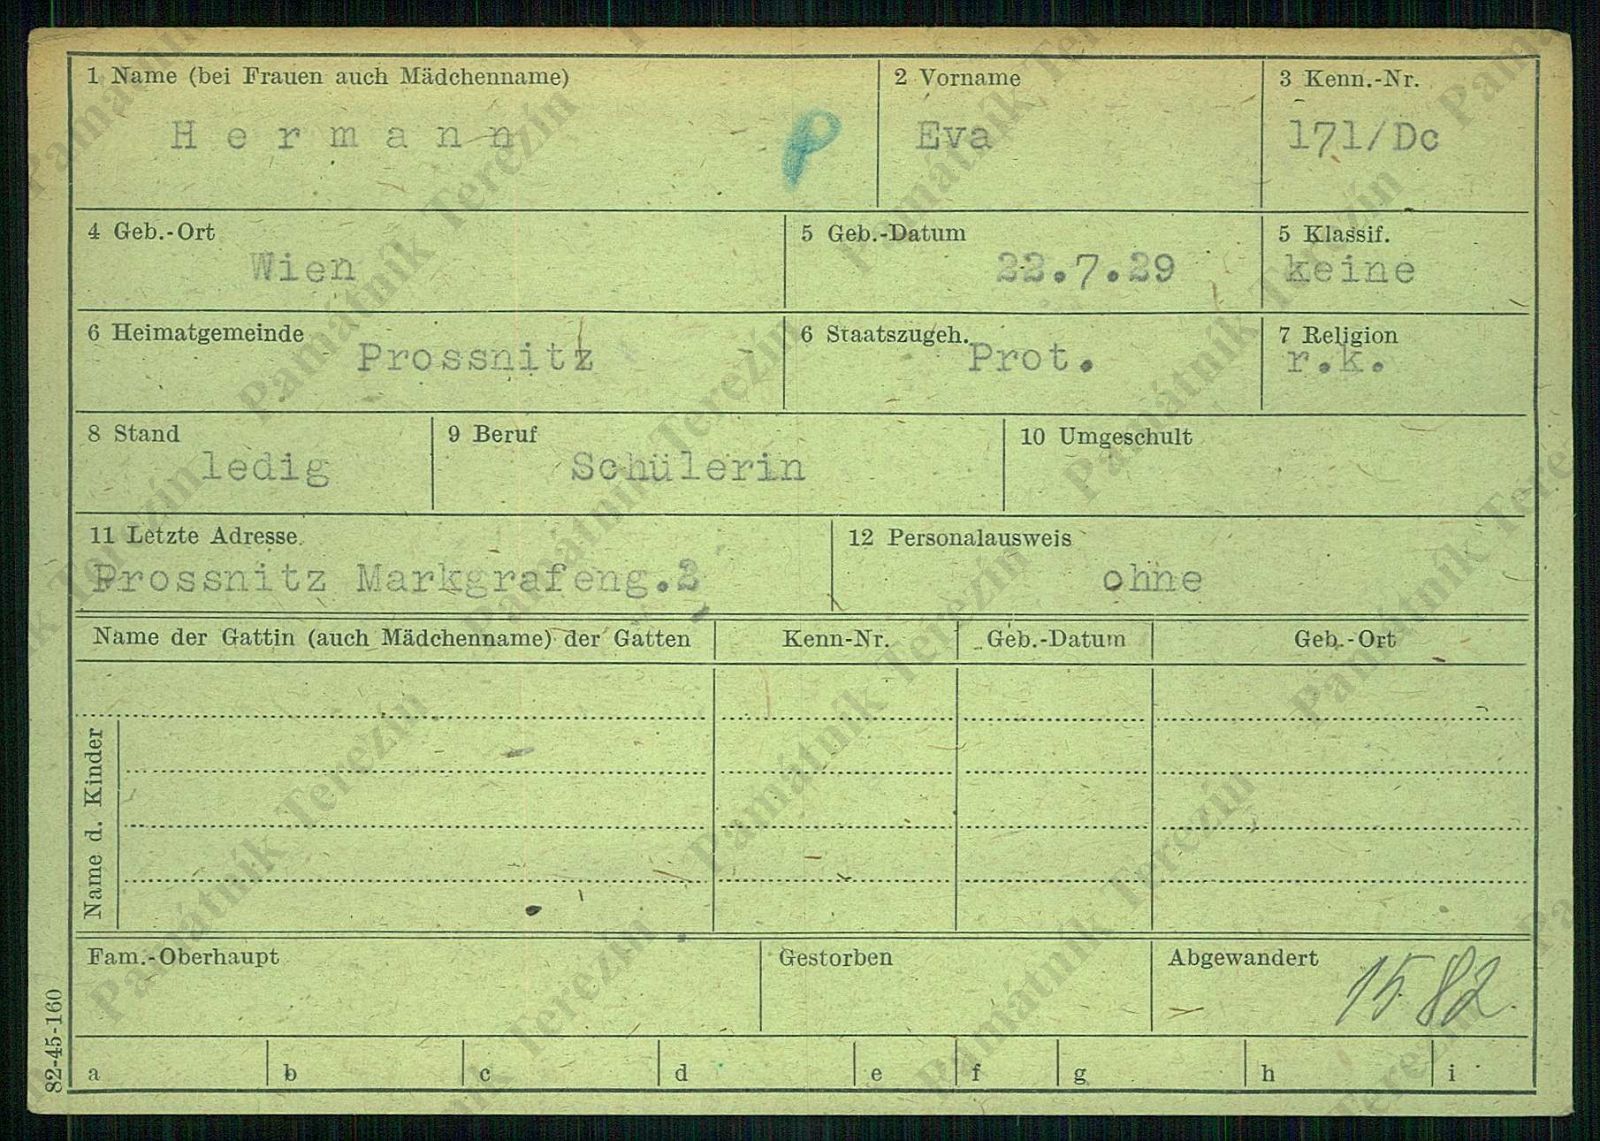 1 Name (bei Frauen auch Mädchenname)
Hermann
P
2 Vorname
Eva
3 Kenn.-Nr.
171/Dc
4 Geb.-Ort
Wien
5 Geb.-Datum
22.7.29
5 Klassif.
keine
6 Heimatgemeinde
Prossnitz
6 Staatszugeh.
Prot.
7 Religion
r.k.
8 Stand
ledig
9 Beruf
Schülerin
10 Umgeschult
11 Letzte Adresse
Prossnitz Markgrafeng.2
12 Personalausweis
ohne
Name der Gattin (auch Mädchenname) der Gatten
Kenn-Nr.
Geb.-Datum
Geb.-Ort
Name d. Kinder
Fam.-Oberhaupt
Gestorben
Abgewandert
1582
82-45-160
a b c d e f g h i
Památník Terezín